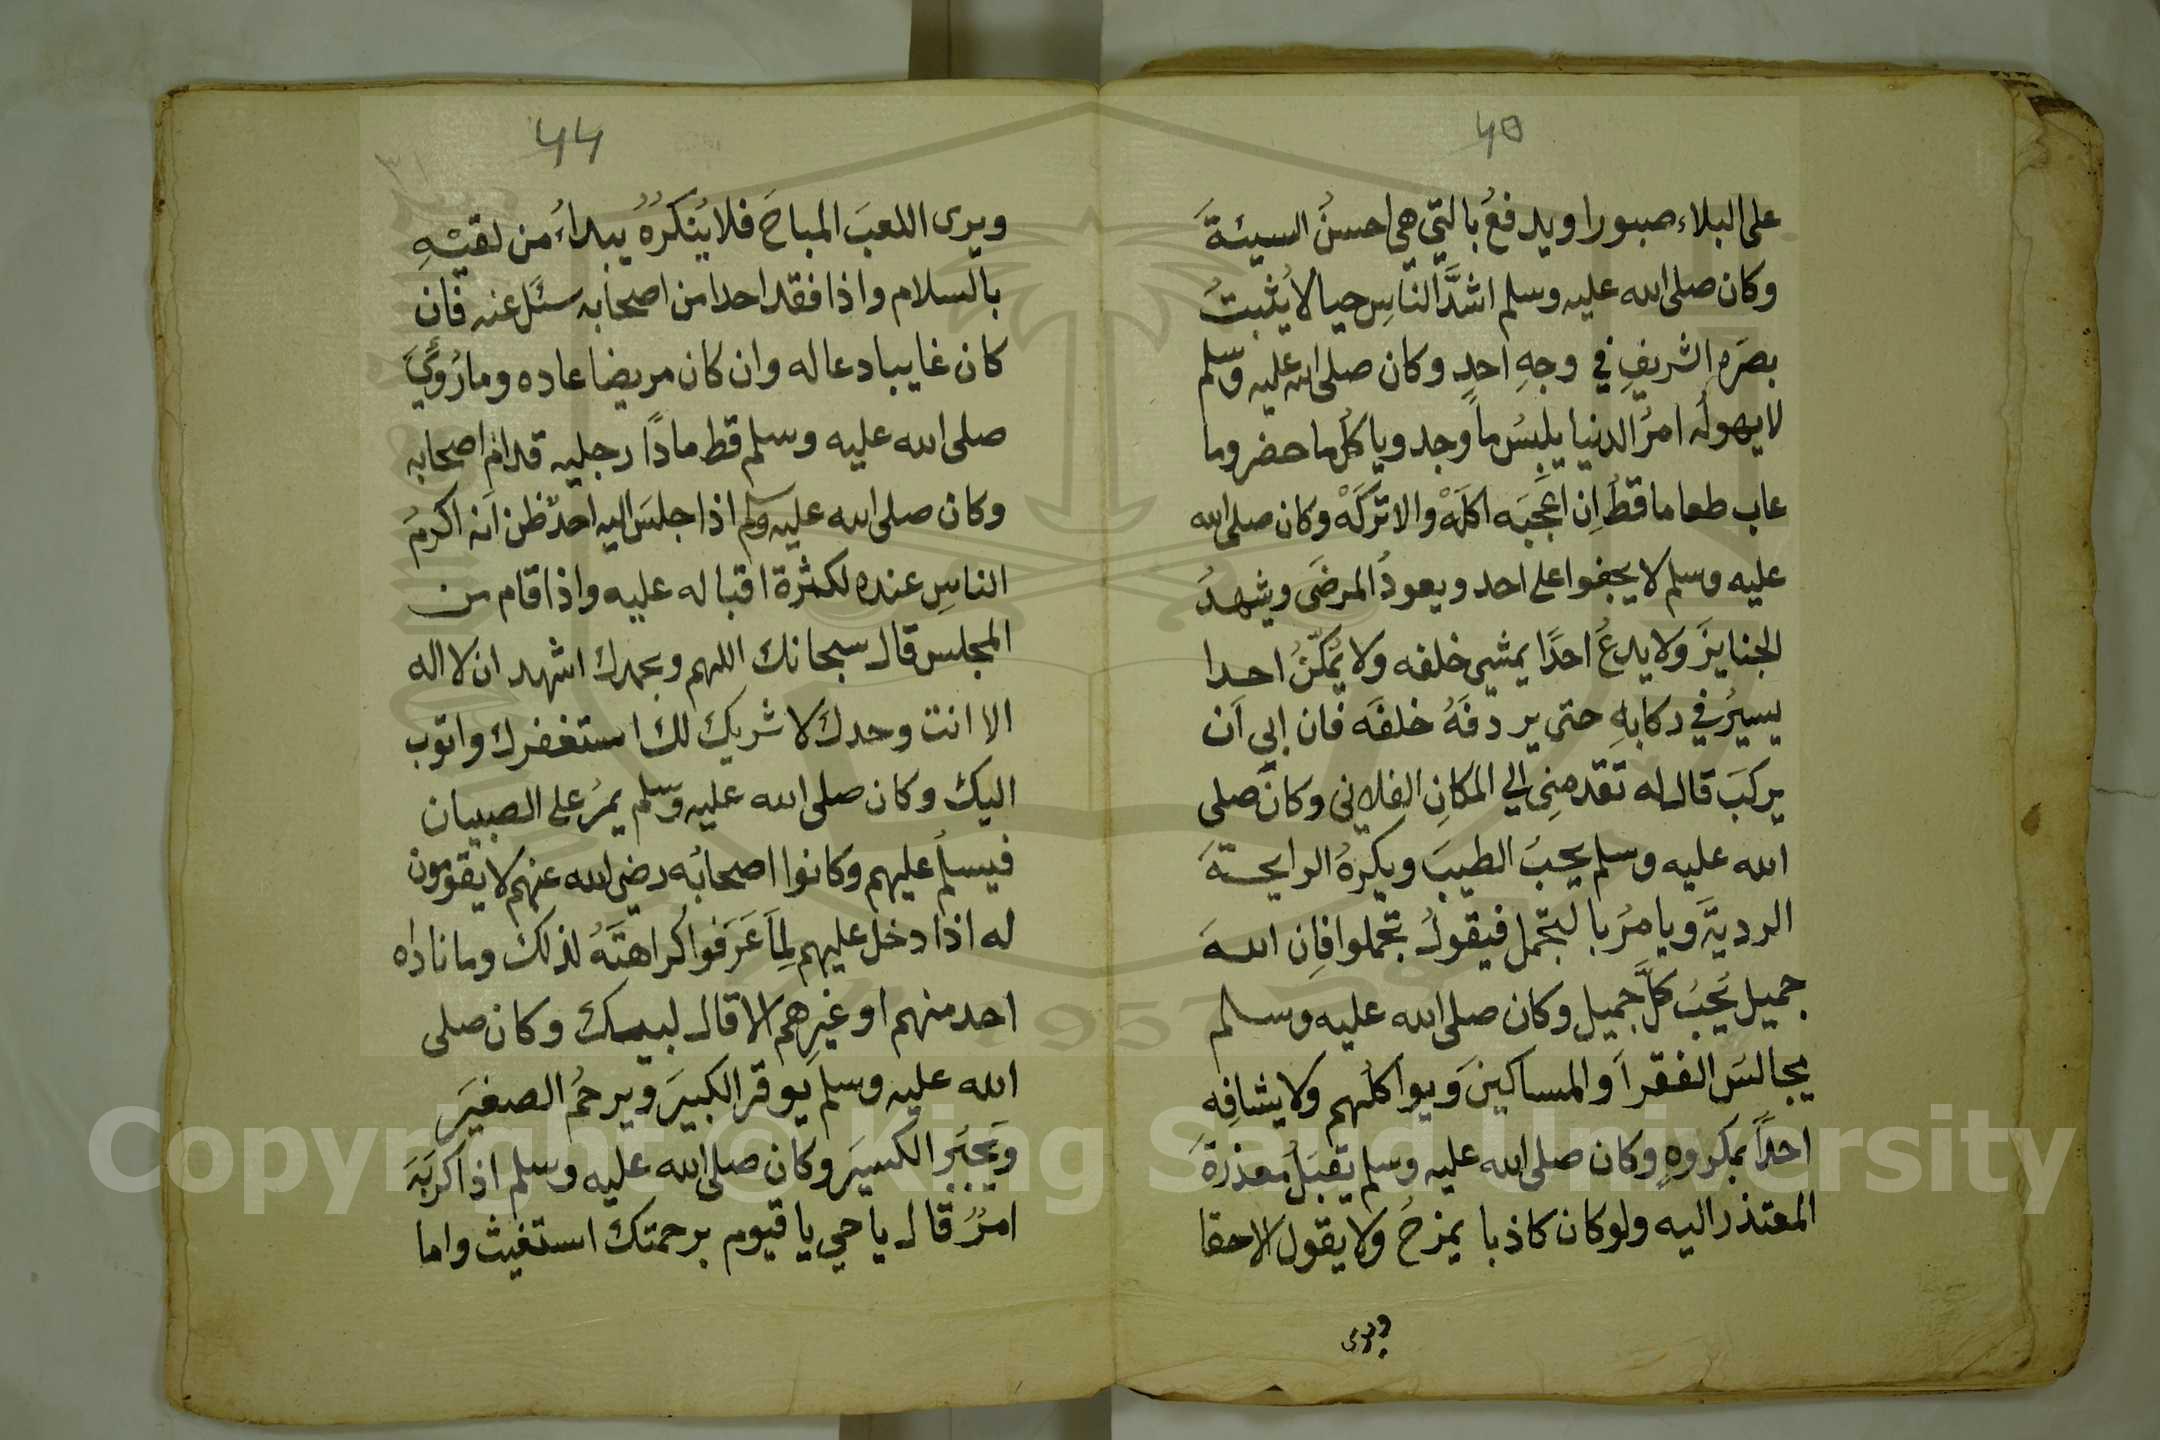 ٤٥
على البلاء صبورا ويدفعُ بالتي هي احسنُ السيئةَ
وكان صلى الله عليه وسلم اشدَّ الناسِ حيا لا يُثبتُ
بصرَه الشريفِ في وجهِ احدٍ وكان صلى الله عليه وسلم
لا يهولُه امرُ الدنيا يلبسُ ما وجد وياكلُ ما حضر وما
عاب طعاما قطُ اِن اعجَبَه اكلَهْ والا تَركَهْ وكان صلى الله
عليه وسلم لا يجفوا على احد ويعودُ المرضَى ويشهدُ
الجنايزَ ولا يدعُ احدًا يمشي خلفه ولا يُمكّنُ احدا
يسيرُ في ركابهِ حتى يردفَهُ خلفَه فان ابي اَن
يركبَ قال له تقدمنِى الي المكانِ الفلاني وكان صلى
الله عليه وسلم يحبُ الطيبَ ويكرهُ الرايحةَ
الرديةَ ويامرُ بالتجمل فيقولُ تجملوا فاِن اللهَ
جميل يُحبُ كلَّ جميل وكان صلى الله عليه وسلم
يجالسُ الفقراَ والمساكينَ ويواكلُهم ولا يشافِه
احدًا بمكروهٍ وكان صلى الله عليه وسلم يقبَلُ معذرةَ
المعتذر اليه ولو كان كاذبا يمزحُ ولا يقول الا حقا
ويرى
٤٤
ويرى اللعبَ المباحَ فلا يُنكرُهُ يبداءُ من لقيَهِ
بالسلام واذا فقد احدا من اصحابه سئَل عنه فان
كان غايبا دعا له وان كان مريضا عاده وما رُوِيَ
صلى الله عليه وسلم قط مادًا رجليه قدام اصحابه
وكان صلى الله عليه وسلم اذا جلسَ اليه احدٌ ظن اَنه اكرمُ
الناسِ عنده لكثرة اقباله عليه واذا قام من
المجلس قال سبحانك اللهم وبحمدك اشهد ان لا اله
الا انت وحدك لا شريكَ لك استغفرك واتوب
اليك وكان صلى الله عليه وسلم يمرُ على الصبيان
فيسلُم عليهم وكانوا اصحابُه رضي الله عنهم لا يقومون
له اذا دخل عليهم لِماَ عَرَفوا كراهتَهُ لذلك وما ناداه
احد منهم او غيرِهم الا قال لبيك وكان صلى
الله عليه وسلم يوقر الكبيرَ ويرحمُ الصغيرَ
ويَجبُر الكسيرَ وكان صلى الله عليه وسلم اذا كربَهَ
امرٌ قال يا حي يا قيوم برحمتك استغيث واما
Copyright © King Saud University